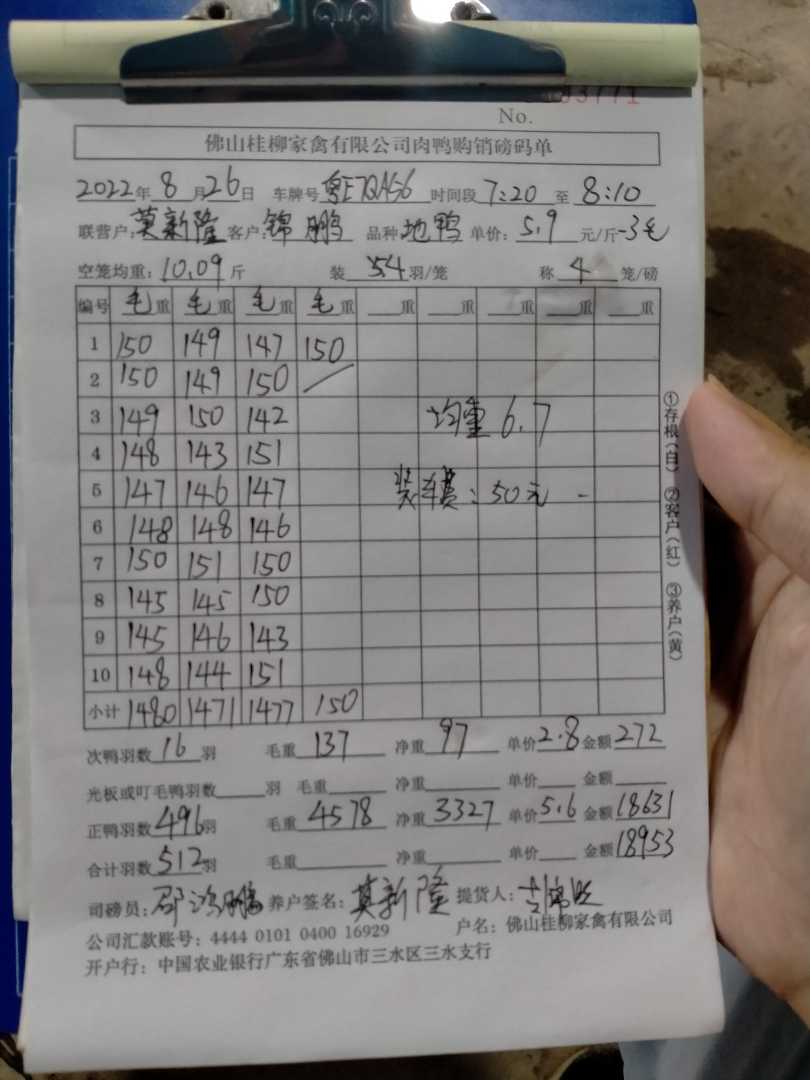 No.
佛山桂柳家禽有限公司肉鸭购销磅码单
2022年 8月26日 车牌号 粤E7QA56 时间段 7:20 至 8:10
联营户:莫新隆 客户:锦鹏 品种 地鸭 单价:5.9 元/斤 -3毛
空笼均重:10.09斤 装 54 羽/笼 称 4 笼/磅
编号 毛重 毛重 毛重 毛重 重 重 重 重 重
1 150 149 147 150
2 150 149 150 /
3 149 150 142 均重 6.7
4 148 143 151
5 147 146 147 装车费:50元 -
6 148 148 146
7 150 151 150
8 145 145 150
9 145 146 143
10 148 144 151
小计 1480 1471 1477 150
①存根(白) ②客户(红) ③养户(黄)
次鸭羽数 16 羽 毛重 137 净重 97 单价 2.8 金额 272
光板或叮毛鸭羽数 羽 毛重 净重 单价 金额
正鸭羽数 496 羽 毛重 4578 净重 3327 单价 5.6 金额 18631
合计羽数 512 羽 毛重 净重 单价 金额 18953
司磅员: 养户签名:莫新隆 提货人:
公司汇款账号:4444 0101 0400 16929 户名:佛山桂柳家禽有限公司
开户行:中国农业银行广东省佛山市三水区三水支行